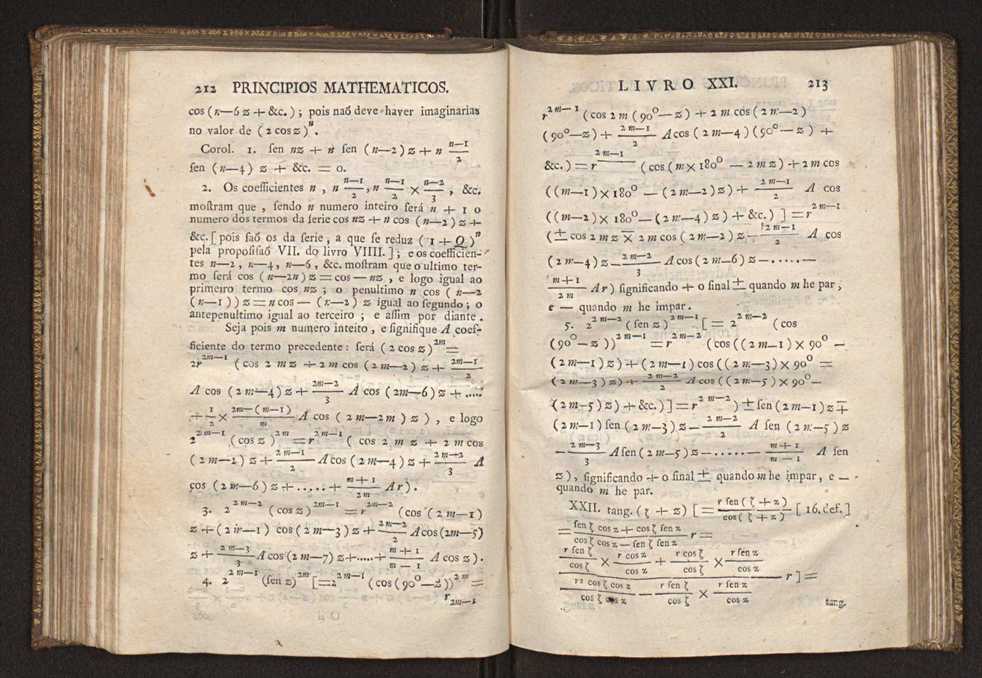 212 PRINCIPIOS MATHEMATICOS.
cos (n—6 z + &c. ) ; pois naõ deve haver imaginarias
no valor de ( 2 cos z )ⁿ.
Corol. 1. ſen nz + n ſen ( n—2 ) z + n (n—1)/2
ſen (n—4) z + &c. = 0.
2. Os coefficientes n , n (n—1)/2 , n (n—1)/2 × (n—2)/3 , &c.
moſtram que , ſendo n numero inteiro ſerá n + 1 o
numero dos termos da ſerie cos nz + n cos (n—2) z +
&c. [ pois ſaõ os da ſerie , a que ſe reduz ( 1 + Q )ⁿ
pela propoſiſaõ VII. do livro VIIII. ] ; e os coefficien-
tes n—2 , n—4, n—6 , &c. moſtram que o ultimo ter-
mo ſerá cos (n—2n) z = cos — nz , e logo igual ao
primeiro termo cos nz ; o penultimo n cos ( n—2
(n—1) ) z = n cos — (n—2) z igual ao ſegundo ; o
antepenultimo igual ao terceiro ; e aſſim por diante .
Seja pois m numero inteito , e ſignifique A coef-
ficiente do termo precedente : ſerá ( 2 cos z )^2m =
2r^2m—1 ( cos 2 mz + 2 m cos ( 2 m—2 ) z + (2m—1)/2
A cos ( 2 m—4 ) z + (2m—2)/3 A cos (2m—6) z + .....
+ 1/2 × (2m—(m—1))/m A cos ( 2 m—2m ) z ) , e logo
2^2m—1 ( cos z )^2m = r^2m—1 ( cos 2 m z + 2 m cos
( 2 m—2 ) z + (2m—1)/2 A cos ( 2 m—4 ) z + (2m—2)/3 A
cos ( 2m—6 ) z + ..... + (m+1)/2m A r ) .
3. 2^2m—2 ( cos z )^2m—1 = r^2m—2 ( cos ( 2 m—1 )
z + ( 2 m—1 ) cos ( 2 m—3 ) z + (2m—2)/2 A cos (2m—5)
z + (2m—3)/3 A cos ( 2 m—7 ) z + ..... + (m+1)/(m—1) A cos z ) .
4. 2^2m—1 (ſen z)^2m [ = 2^2m—1 ( cos (90°—z))^2m =
r^2m—1
LIVRO XXI. 213
r^2m—1 ( cos 2 m ( 90° — z ) + 2 m cos ( 2 m—2 )
( 90°—z ) + (2m—1)/2 A cos ( 2 m—4 ) ( 90° — z ) +
&c. ) = r^2m—1 ( cos ( m × 180° — 2 m z ) + 2 m cos
( ( m—1 ) × 180° — ( 2 m—2 ) z ) + (2m—1)/2 A cos
( ( m—2 ) × 180° — ( 2 m—4 ) z ) + &c. ) ] = r^2m—1
( ± cos 2 m z ∓ 2 m cos ( 2 m—2 ) z ± (2m—1)/2 A cos
( 2 m—4 ) z — (2m—2)/3 A cos ( 2 m—6 ) z — ..... —
(m+1)/2m A r ) ſignificando + o ſinal ± quando m he par ,
e — quando m he impar .
5. 2^2m—2 ( ſen z )^2m—1 [ = 2^2m—2 ( cos
( 90° — z ) )^2m—1 = r^2m—2 ( cos ( ( 2 m—1 ) × 90° —
( 2 m—1 ) z ) + ( 2 m—1 ) cos ( ( 2 m—3 ) × 90° =
( 2 m—3 ) z ) + (2m—2)/2 A cos ( ( 2 m—5 ) × 90° —
( 2 m—5 ) z ) + &c. ) ] = r^2m—2 ) ± ſen ( 2 m—1 ) z ∓
( 2 m—1 ) ſen ( 2 m—3 ) z — (2m—2)/2 A ſen ( 2 m—5 ) z
— (2m—3)/3 A ſen ( 2 m—5 ) z — ....... — (m+1)/(m—1) A ſen
z ) , ſignificando + o ſinal ± quando m he impar , e —
quando m he par.
XXII. tang. ( ζ + z ) [ = r ſen ( ζ + z ) / cos ( ζ + z ) [ 16. def. ]
= (ſen ζ cos z + cos ζ ſen z) / (cos ζ cos z — ſen ζ ſen z) r =
r ſen ζ / cos ζ × r cos z / cos z + r cos ζ / cos ζ × r ſen z / cos z
r² cos ζ cos z / cos ζ cos z — r ſen ζ / cos ζ × r ſen z / cos z r ] =
tang.